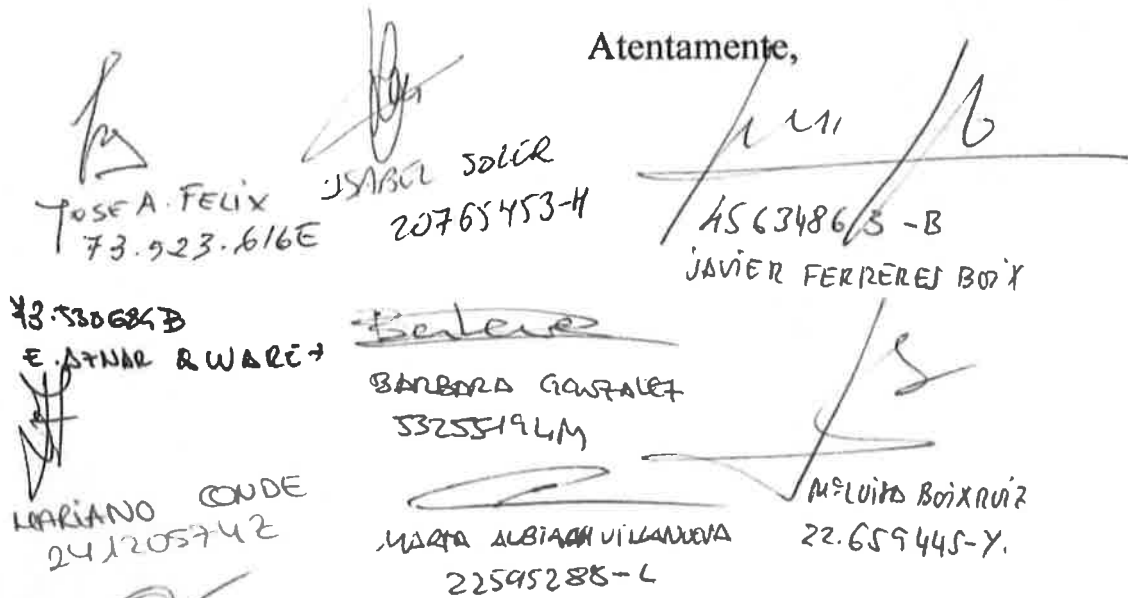 Atentamente,
JOSE A. FELIX
73.923.616E
ISABEL SOLER
20765453-H
45634863-B
JAVIER FERRERES BOIX
73.530684B
E. AZNAR
BARBARA GONZALEZ
53255194M
MARIANO CONDE
24120574Z
MARTA ALBIACH VILLANUEVA
22595288-L
Mª LUISA BOIX RUIZ
22.659445-Y.